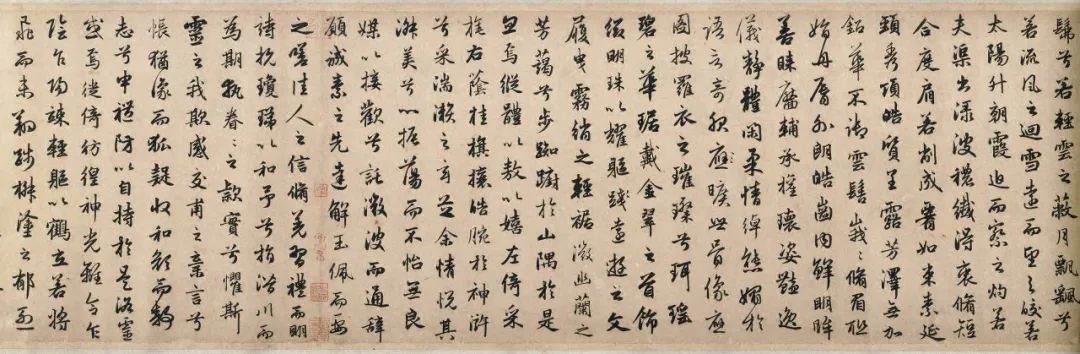 髴兮若輕雲之蔽月飄飖兮
若流風之迴雪遠而望之皎若
太陽升朝霞迫而察之灼若
夫渠出淥波穠纖得衷脩短
合度肩若削成要如束素延
頸秀項皓質呈露芳澤無加
鉛華不御雲髻峩峩脩眉聯
娟丹脣外朗皓齒内鮮明眸
善睞靨輔承權瓌姿豔逸
儀靜體閑柔情綽態媚於
語言奇服應曠世骨像應
圖披羅衣之璀璨兮珥瑤
碧之華琚戴金翠之首飾
綴明珠以耀軀踐遠遊之文
履曳霧綃之輕裾微幽蘭之
芳藹兮步踟躕於山隅於是
忽焉縱體以敖以嬉左倚采
旄右蔭桂旗攘皓腕於神滸
兮采湍瀨之玄芝余情悅其
淑美兮心振蕩而不怡無良
媒以接歡兮託微波而通辭
願誠素之先達解玉佩而要
之嗟佳人之信脩羌習禮而明
詩抗瓊珶以和予兮指潛川而
為期執眷〻之款實兮懼斯
靈之我欺感交甫之棄言兮
悵猶豫而狐疑收和顏而靜
志兮申禮防以自持於是洛靈
感焉徙倚彷徨神光離合乍
陰乍陽竦輕軀以鶴立若將
飛而未翔踐椒塗之郁烈